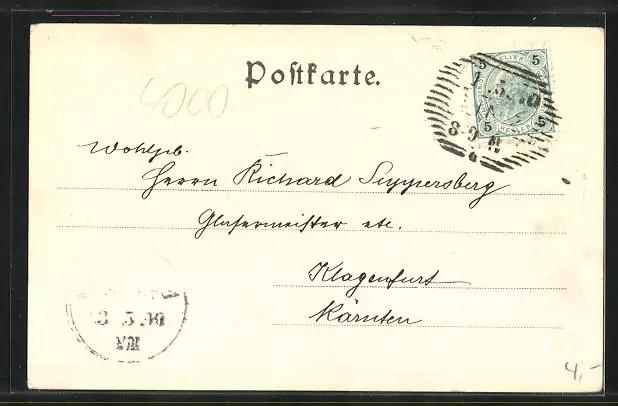 Postkarte.
4000
5 5
5 5
Wohlgeb.
Herrn Richard Suppersberg
Glasermeister etc.
Klagenfurt
Kärnten
3 5 00
VIII
4,-